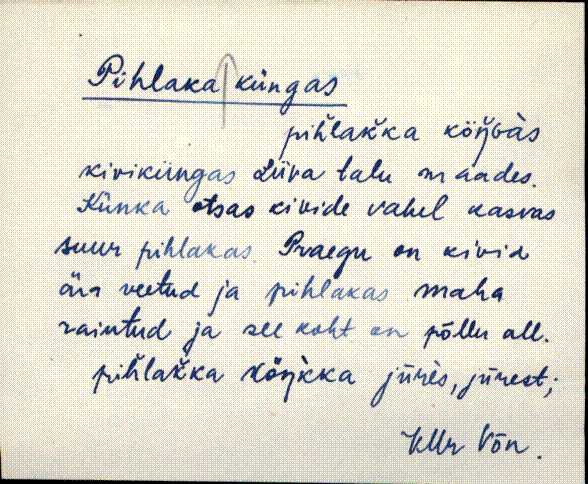 Pihlaka küngas
pihlakka köŋgàs
kiviküngas Liiva talu maades.
Künka otsas kivide vahel kasvas
suur pihlakas. Praegu on kivid
ära veetud ja pihlakas maha
raiutud ja see koht on põllu all.
pihlakka köŋkka jũrès, jũrest;
Võn.